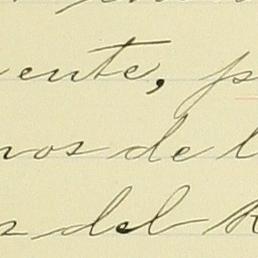 ente, p
nos de l
s del R